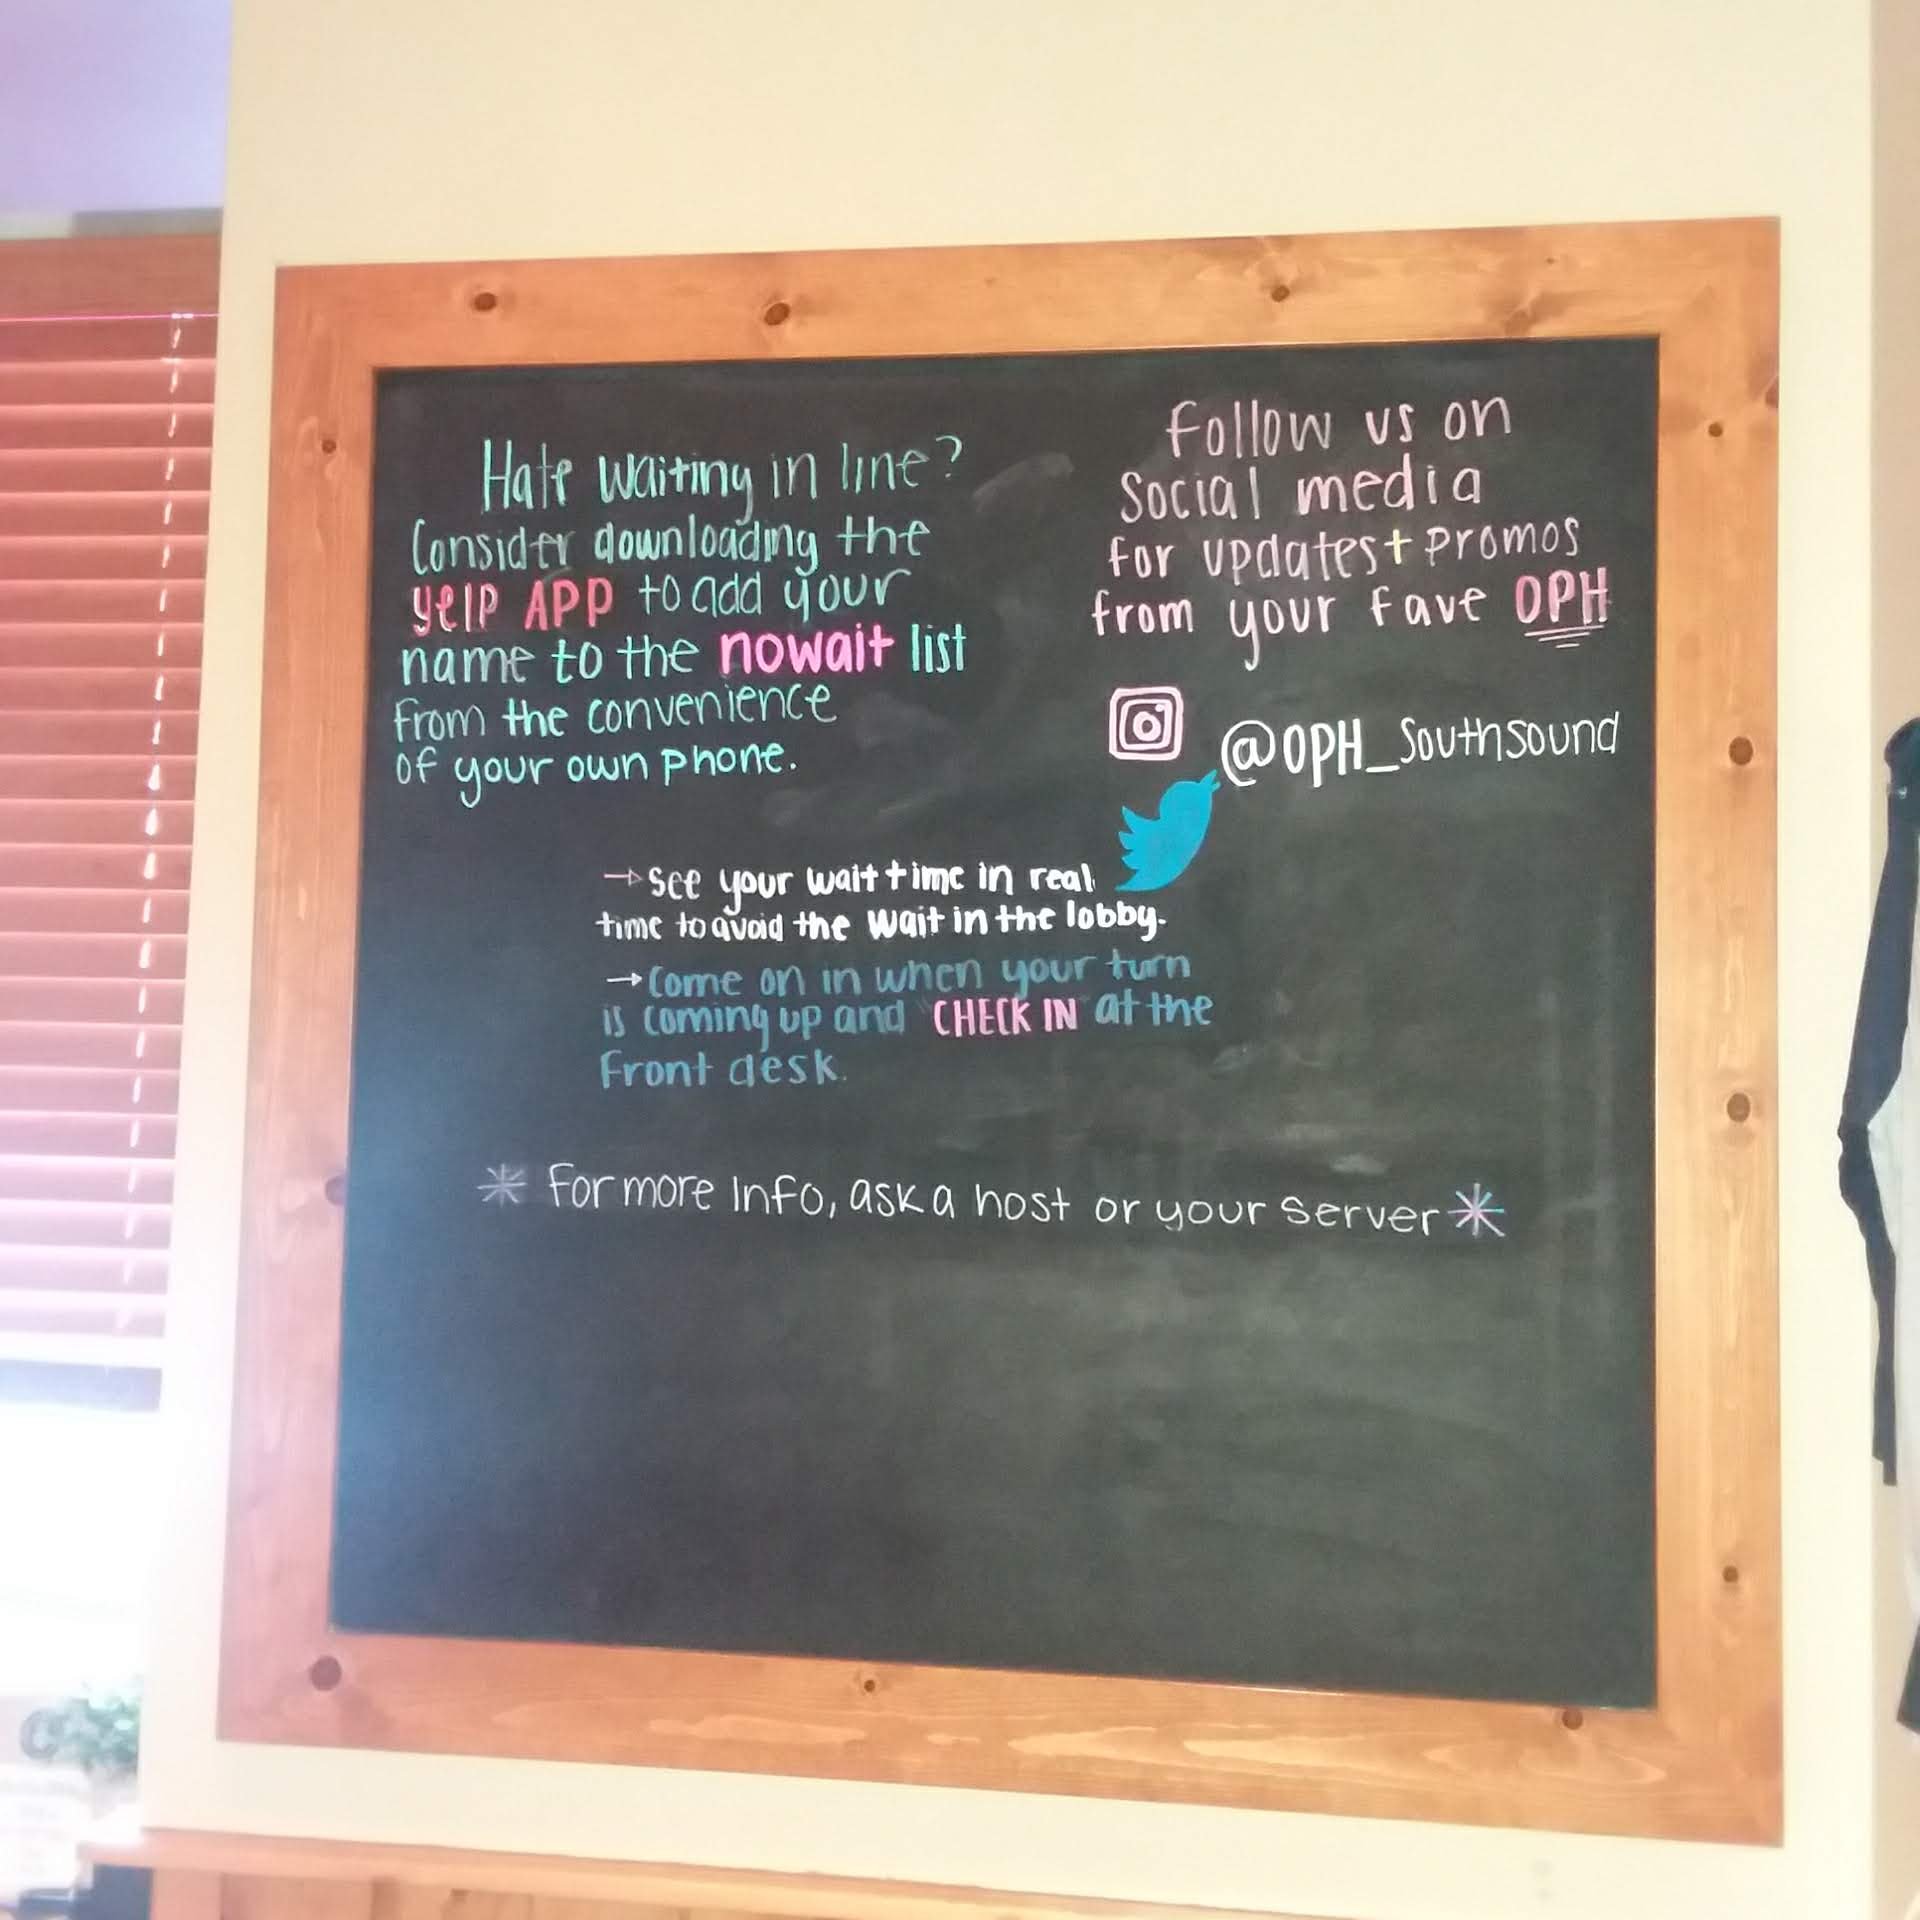 Hate waiting in line?
Consider downloading the
yelp APP to add your
name to the nowait list
from the convenience
of your own phone.
Follow us on
Social media
for updates + promos
from your fave OPH
@OPH_Southsound
→ see your wait time in real
time to avoid the wait in the lobby.
→ Come on in when your turn
is coming up and "CHECK IN" at the
Front desk.
* For more info, ask a host or your server *